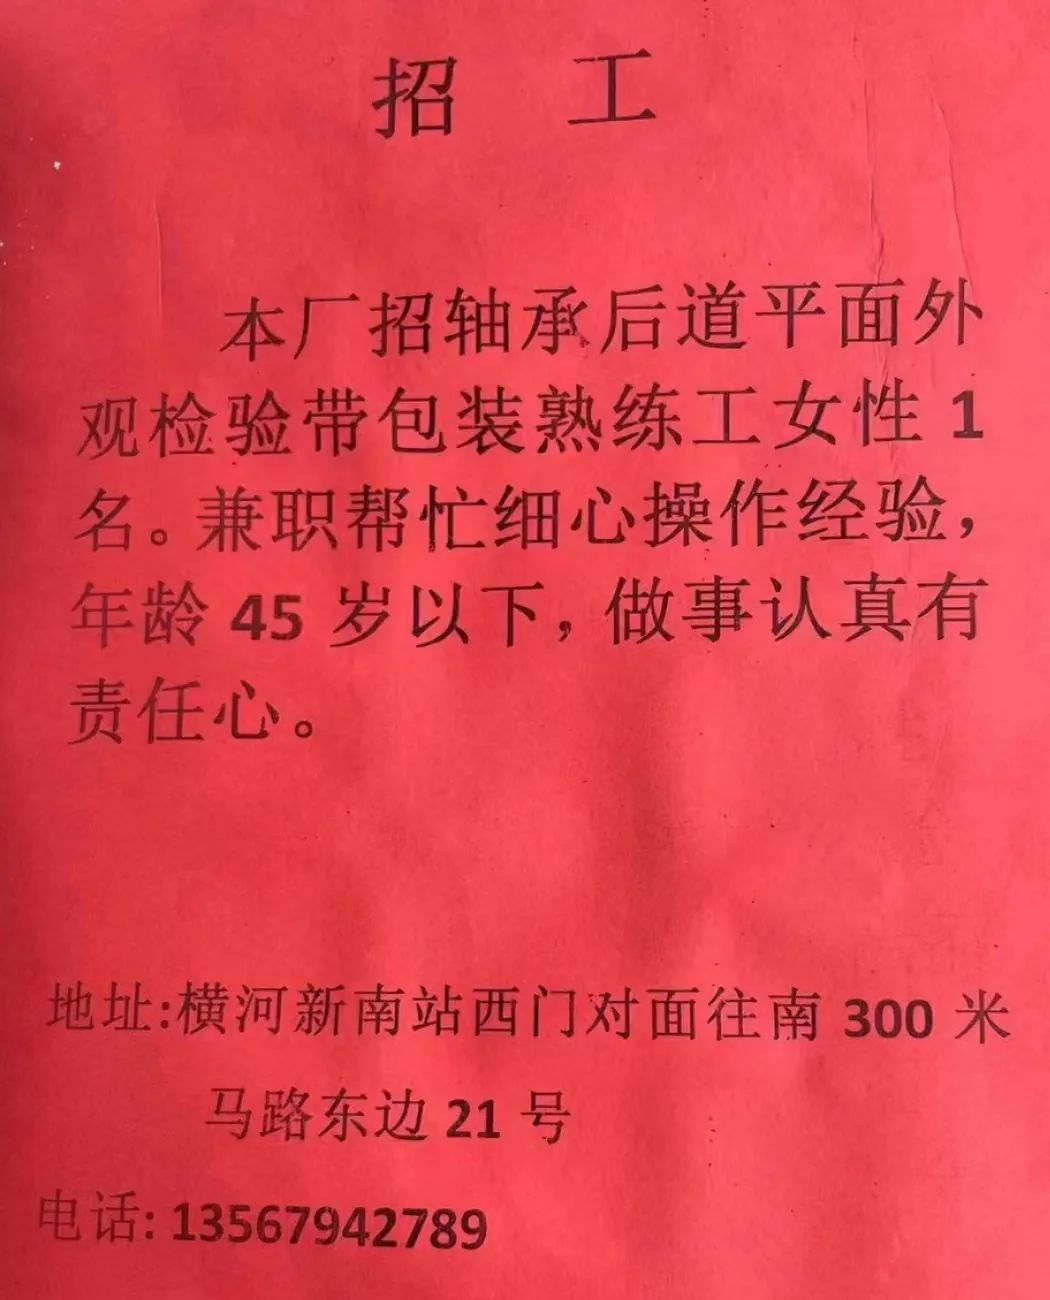 招 工
本厂招轴承后道平面外
观检验带包装熟练工女性 1
名。兼职帮忙细心操作经验，
年龄 45 岁以下，做事认真有
责任心。
地址:横河新南站西门对面往南 300 米
马路东边 21 号
电话: 13567942789